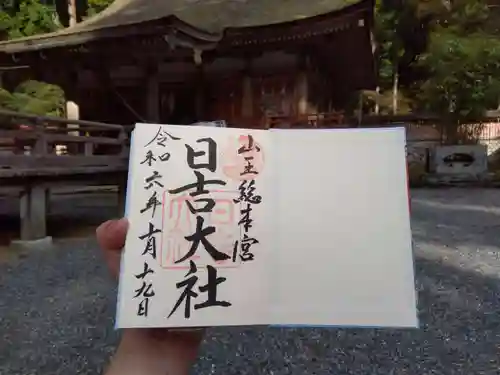 山王総本宮
日吉大社
令和六年十一月十九日